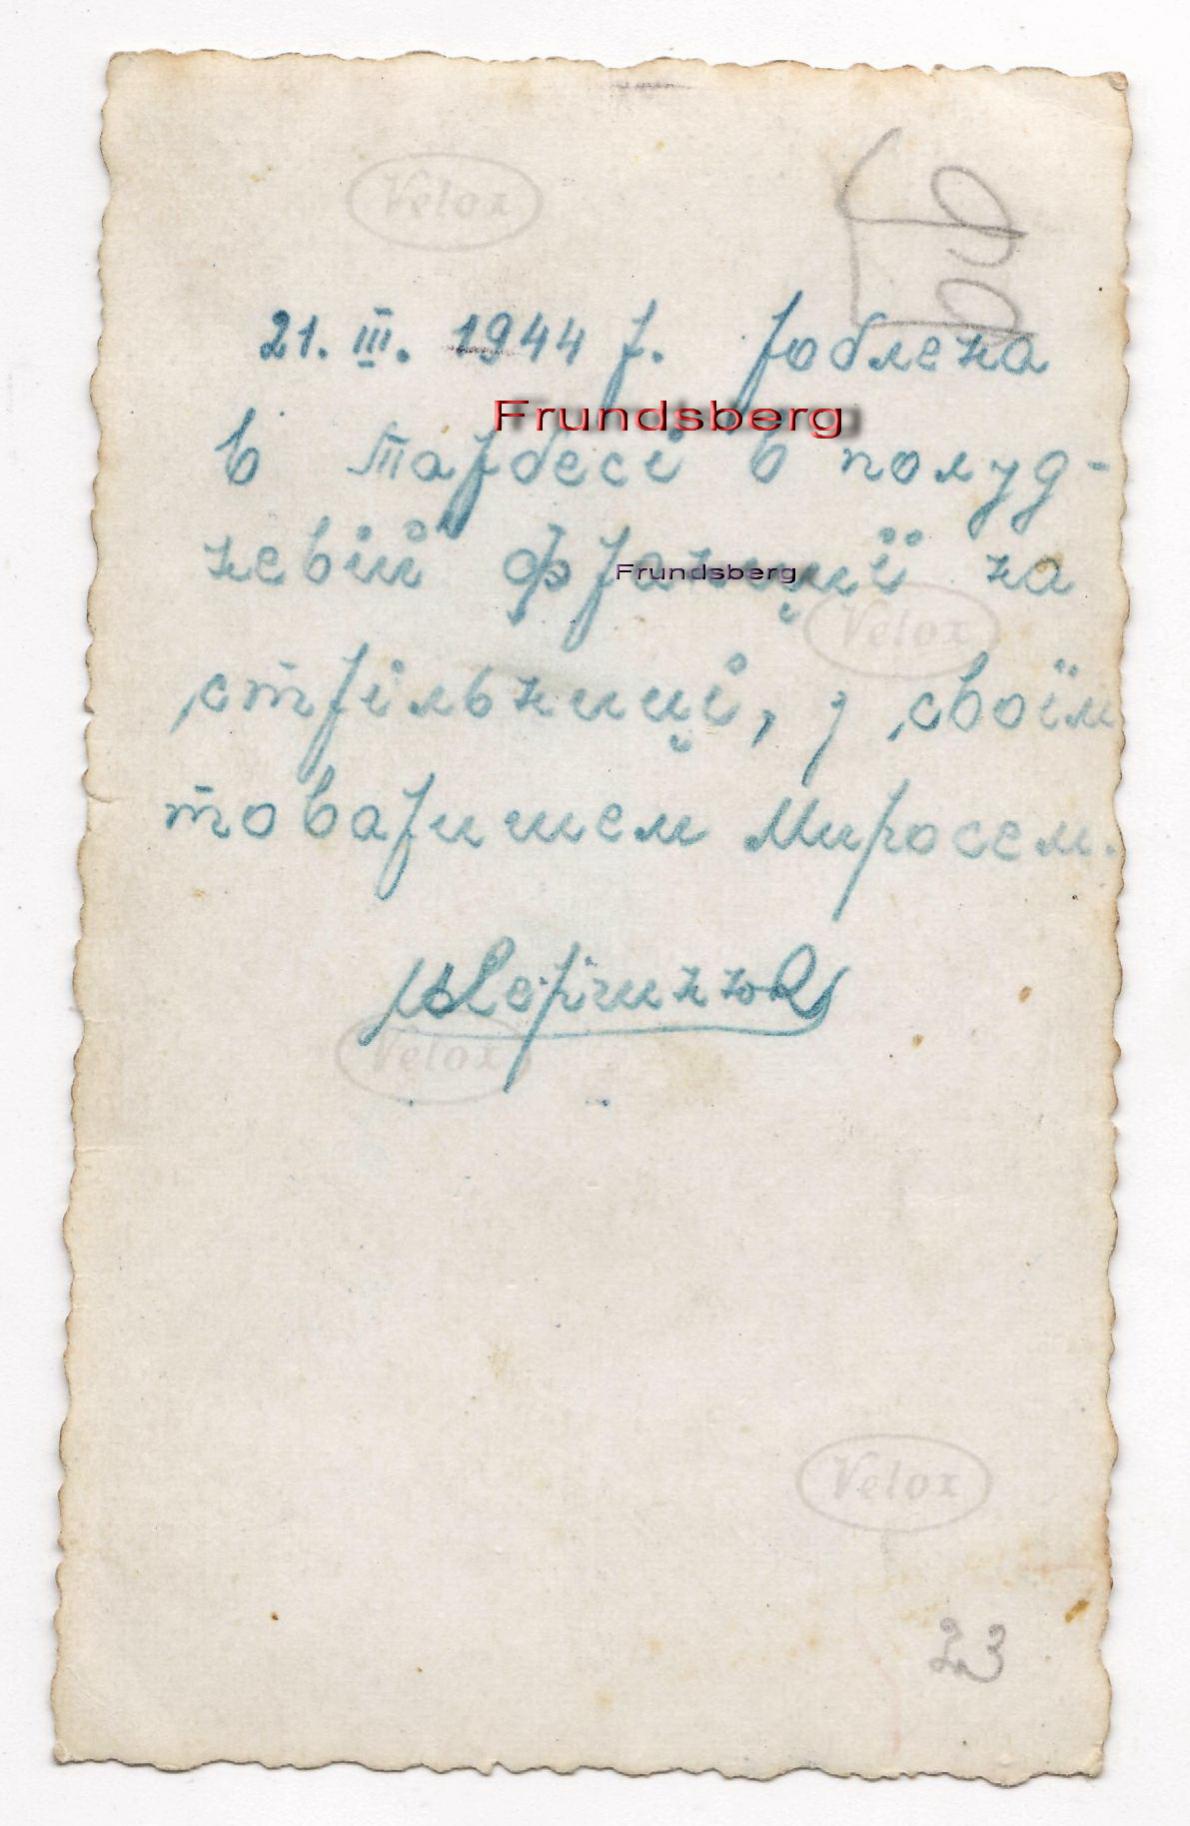 Velox
21. III. 1944 р. роблена
Frundsberg
в Тарбесі в полуд-
невій Франції на
Frundsberg
Velox
стрільниці, з своїм
товаришем Миросем.
Velox
Velox
23